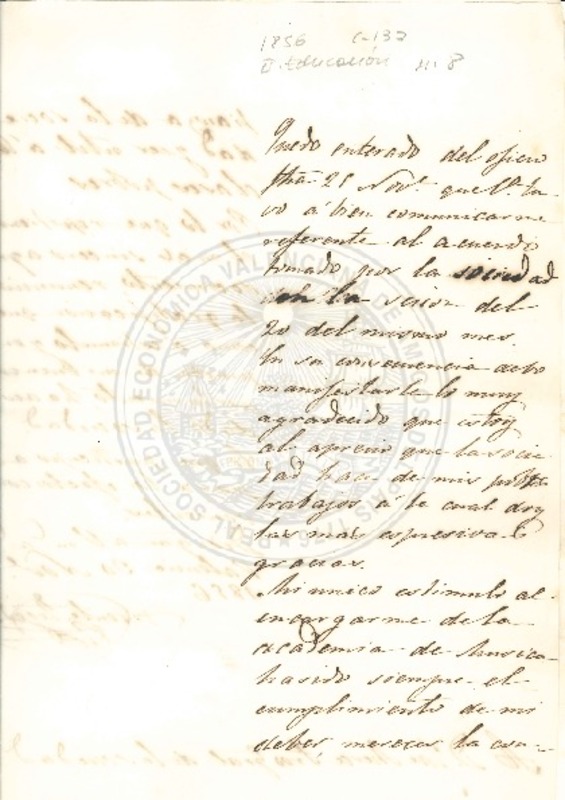 1856 C-132
II. Educación n. 8
Quedo enterado del oficio
fha 25 Novᵉ que V. tu
vo á bien comunicarme
referente al acuerdo
tomado por la sociedad
en la secion del
20 del mismo mes.
En su consecuencia debo
manifestarle lo muy
agradecido que estoy
al aprecio que la socie
dad hace de mis
trabajos á la cual doy
las mas espresivas
gracias.
Mi unico estimulo al
encargarme de la
academia de Musica
ha sido siempre el
cumplimiento de mi
deber, merecer la con-
REAL SOCIEDAD ECONÓMICA VALENCIANA DE AMIGOS DEL PAÍS 1776